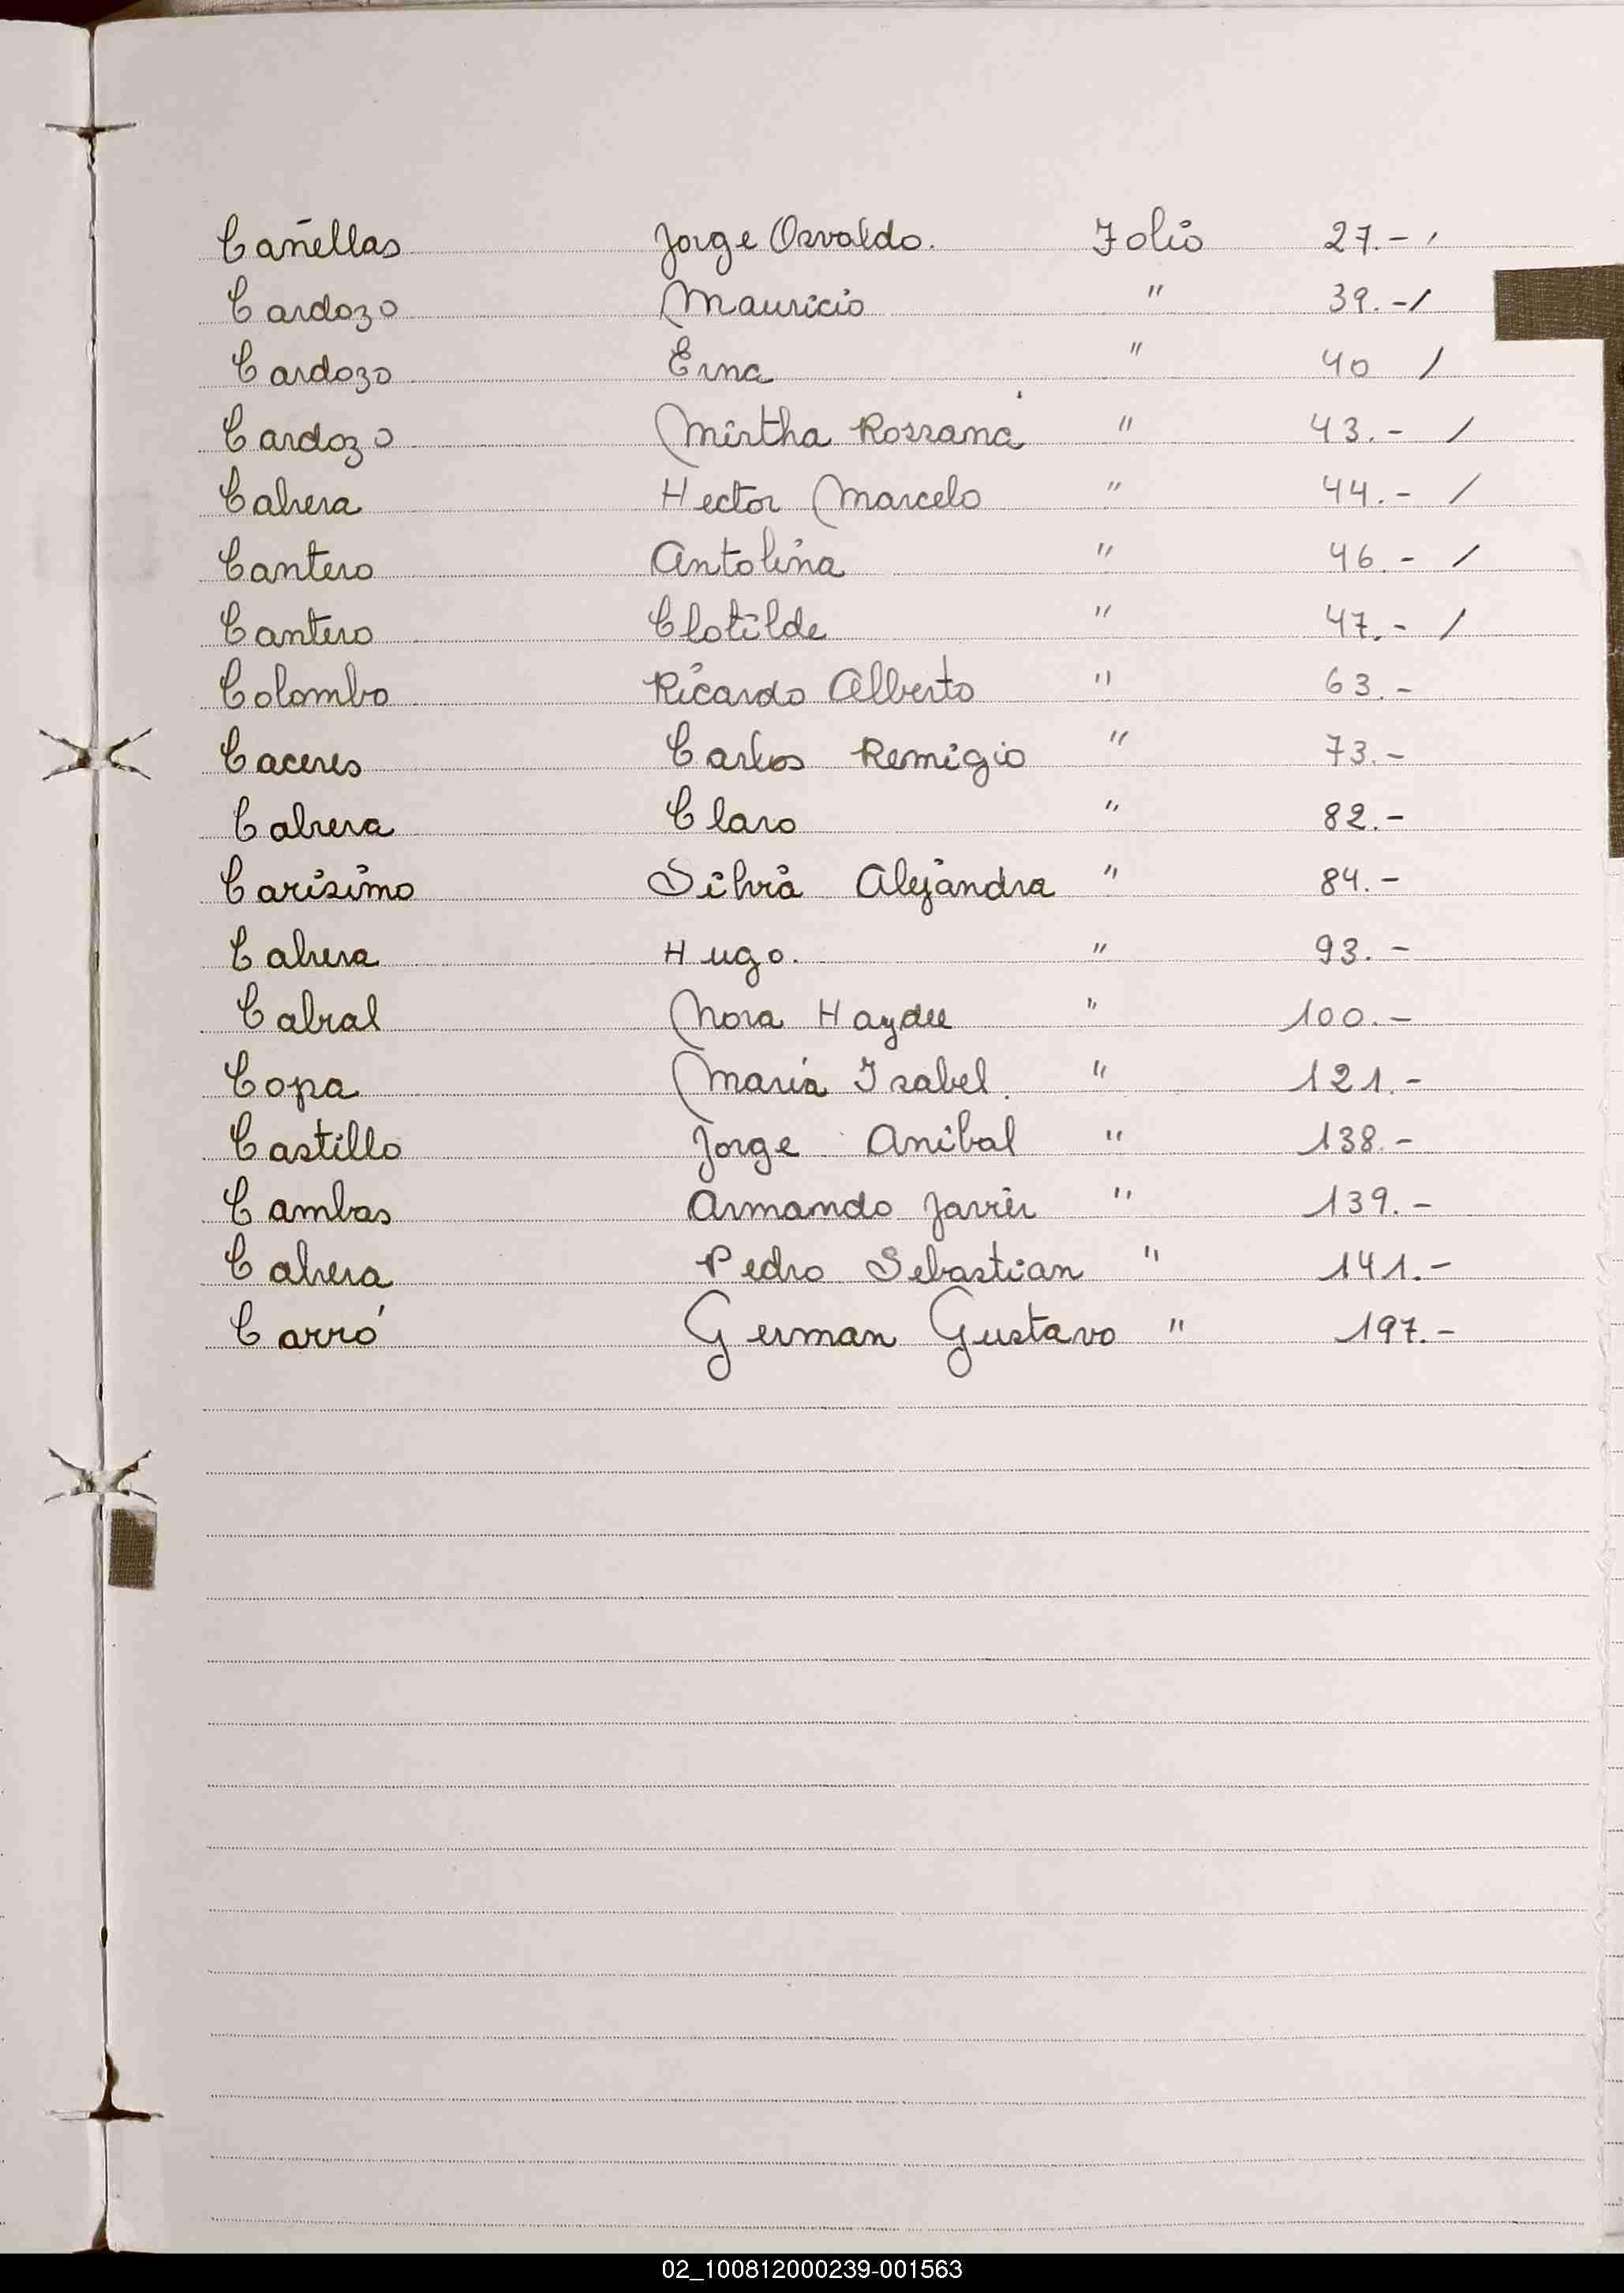 Cañellas Jorge Osvaldo. Folio 27.- /
Cardozo Mauricio " 39.- /
Cardozo Erna " 40 /
Cardozo Mirtha Rossana " 43.- /
Cabrera Hector Marcelo " 44.- /
Cantero Antolina " 46.- /
Cantero Clotilde " 47.- /
Colombo Ricardo Alberto " 63.-
Caceres Carlos Remigio " 73.-
Cabrera Claro " 82.-
Carisimo Silvia Alejandra " 84.-
Cabrera Hugo. " 93.-
Cabral Nora Haydee " 100.-
Copa María Isabel. " 121.-
Castillo Jorge Anibal " 138.-
Cambas Armando Javier " 139.-
Cabrera Pedro Sebastian " 141.-
Carró German Gustavo " 197.-
02_100812000239-001563